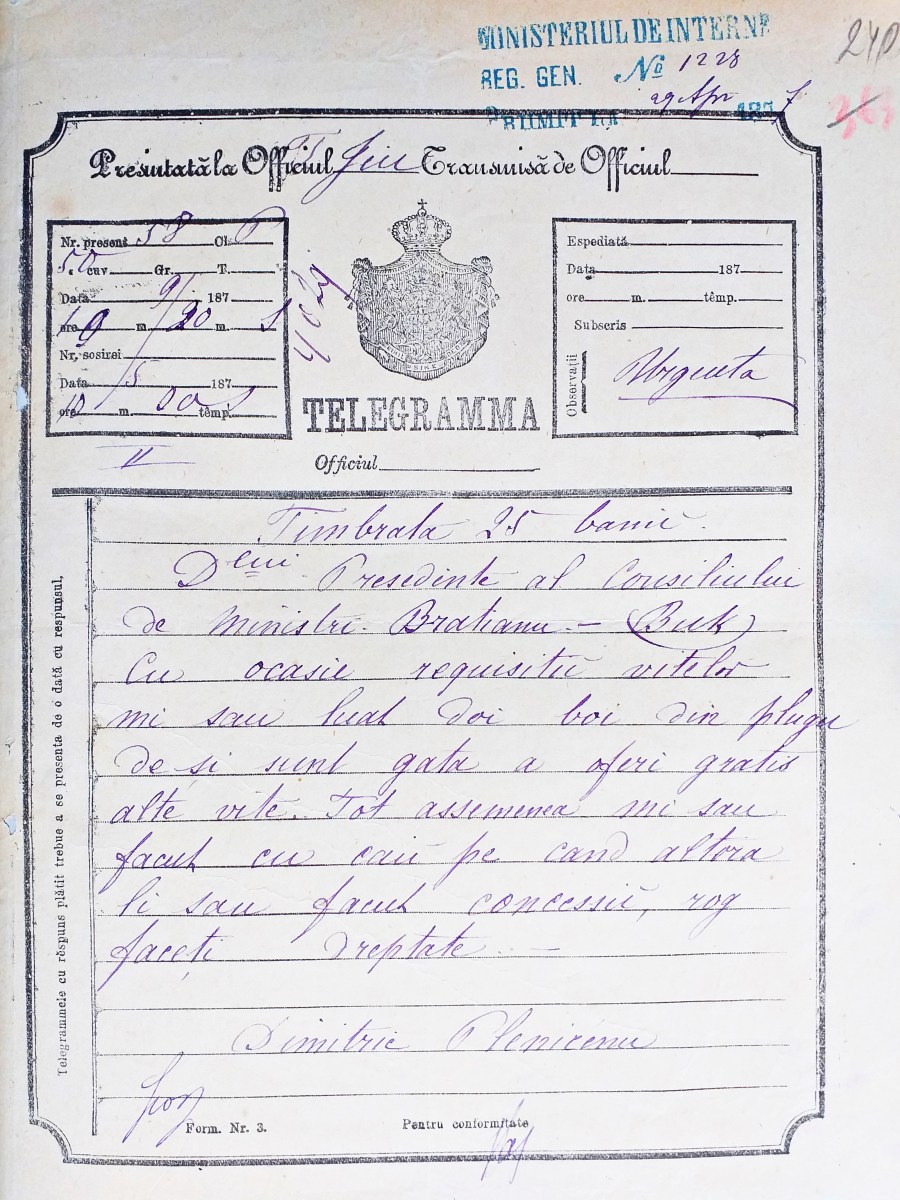 MINISTERIUL DE INTERNE
REG. GEN. No 1228
29 Apr 1877
PRIIMIT LA
240
Presintată la Officiul T. Jiu Transmisă de Officiul
Nr. present 58 Cl.
50 cuv. Gr. T.
Data 9/ 187
ore 9 m. 20 m. S
Nr. sosirei
Data 5 187
ore 10 m. 00 têmp. S
II
TELEGRAMMA
Officiul
Espediată
Data 187
ore m. têmp.
Subscris
Observații
Urgenta
Telegrammele cu rĕspuns plătit trebue a se presenta de o dată cu respunsul,
Timbrata 25 banii.
Dlui Presedinte al Consiliului
de ministri. Bratianu. - (Buk)
Cu ocasie requisitii vitelor
mi sau luat doi boi din plugu
de si sunt gata a oferi gratis
alte vite. Tot assemenea mi sau
facut cu caii pe cand altora
li sau facut concessii, rog
faceți dreptate. -
Dimitrie Plenicenu
Form. Nr. 3. Pentru conformitate